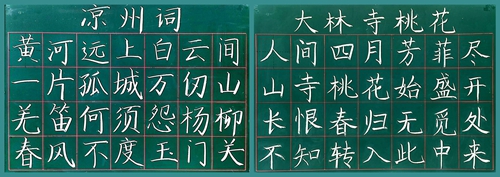 凉州词
黄河远上白云间
一片孤城万仞山
羌笛何须怨杨柳
春风不度玉门关
大林寺桃花
人间四月芳菲尽
山寺桃花始盛开
长恨春归无觅处
不知转入此中来